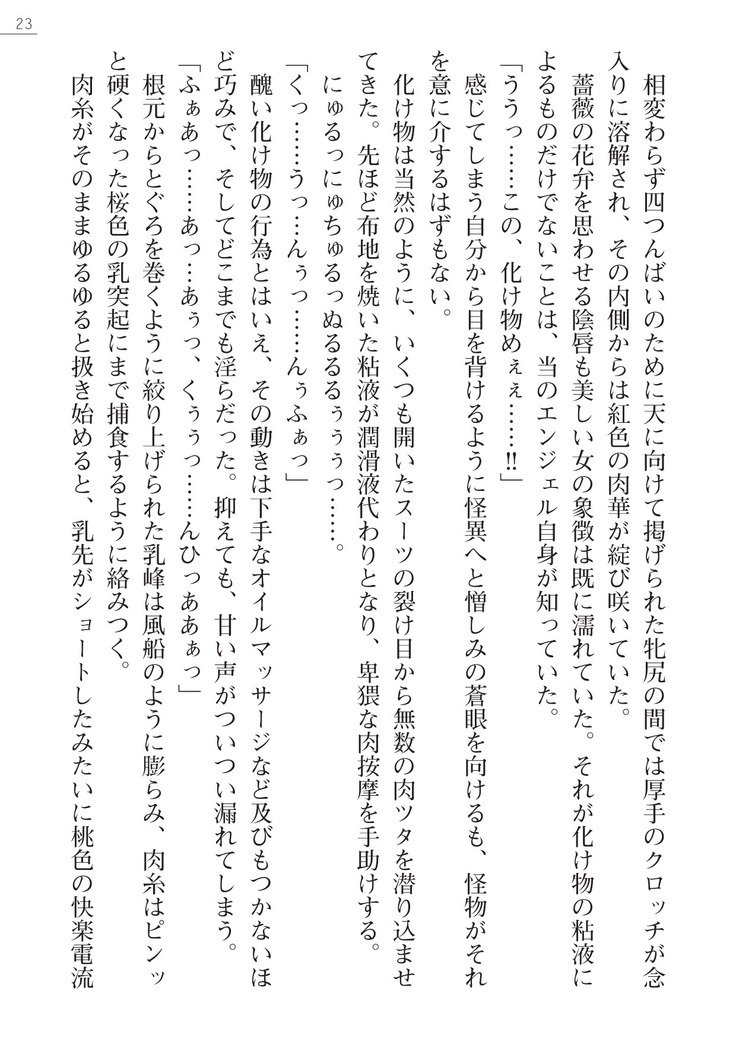 23
相変わらず四つんばいのために天に向けて掲げられた牝尻の間では厚手のクロッチが念
入りに溶解され、その内側からは紅色の肉華が綻び咲いていた。
薔薇の花弁を思わせる陰唇も美しい女の象徴は既に濡れていた。それが化け物の粘液に
よるものだけでないことは、当のエンジェル自身が知っていた。
「ううっ……この、化け物めぇぇ……!!」
感じてしまう自分から目を背けるように怪異へと憎しみの蒼眼を向けるも、怪物がそれ
を意に介するはずもない。
化け物は当然のように、いくつも開いたスーツの裂け目から無数の肉ツタを潜り込ませ
てきた。先ほど布地を焼いた粘液が潤滑液代わりとなり、卑猥な肉按摩を手助けする。
にゅるっにゅちゅるっぬるるるぅぅぅっ……。
「くっ……うっ…んぅっ……んぅふぁっ」
醜い化け物の行為とはいえ、その動きは下手なオイルマッサージなど及びもつかないほ
ど巧みで、そしてどこまでも淫らだった。抑えても、甘い声がついつい漏れてしまう。
「ふぁあっ……あっ…あぅっ、くぅぅっ……んひっああぁっ」
根元からとぐろを巻くように絞り上げられた乳峰は風船のように膨らみ、肉糸はピンッ
と硬くなった桜色の乳突起にまで捕食するように絡みつく。
肉糸がそのままゆるゆると扱き始めると、乳先がショートしたみたいに桃色の快楽電流